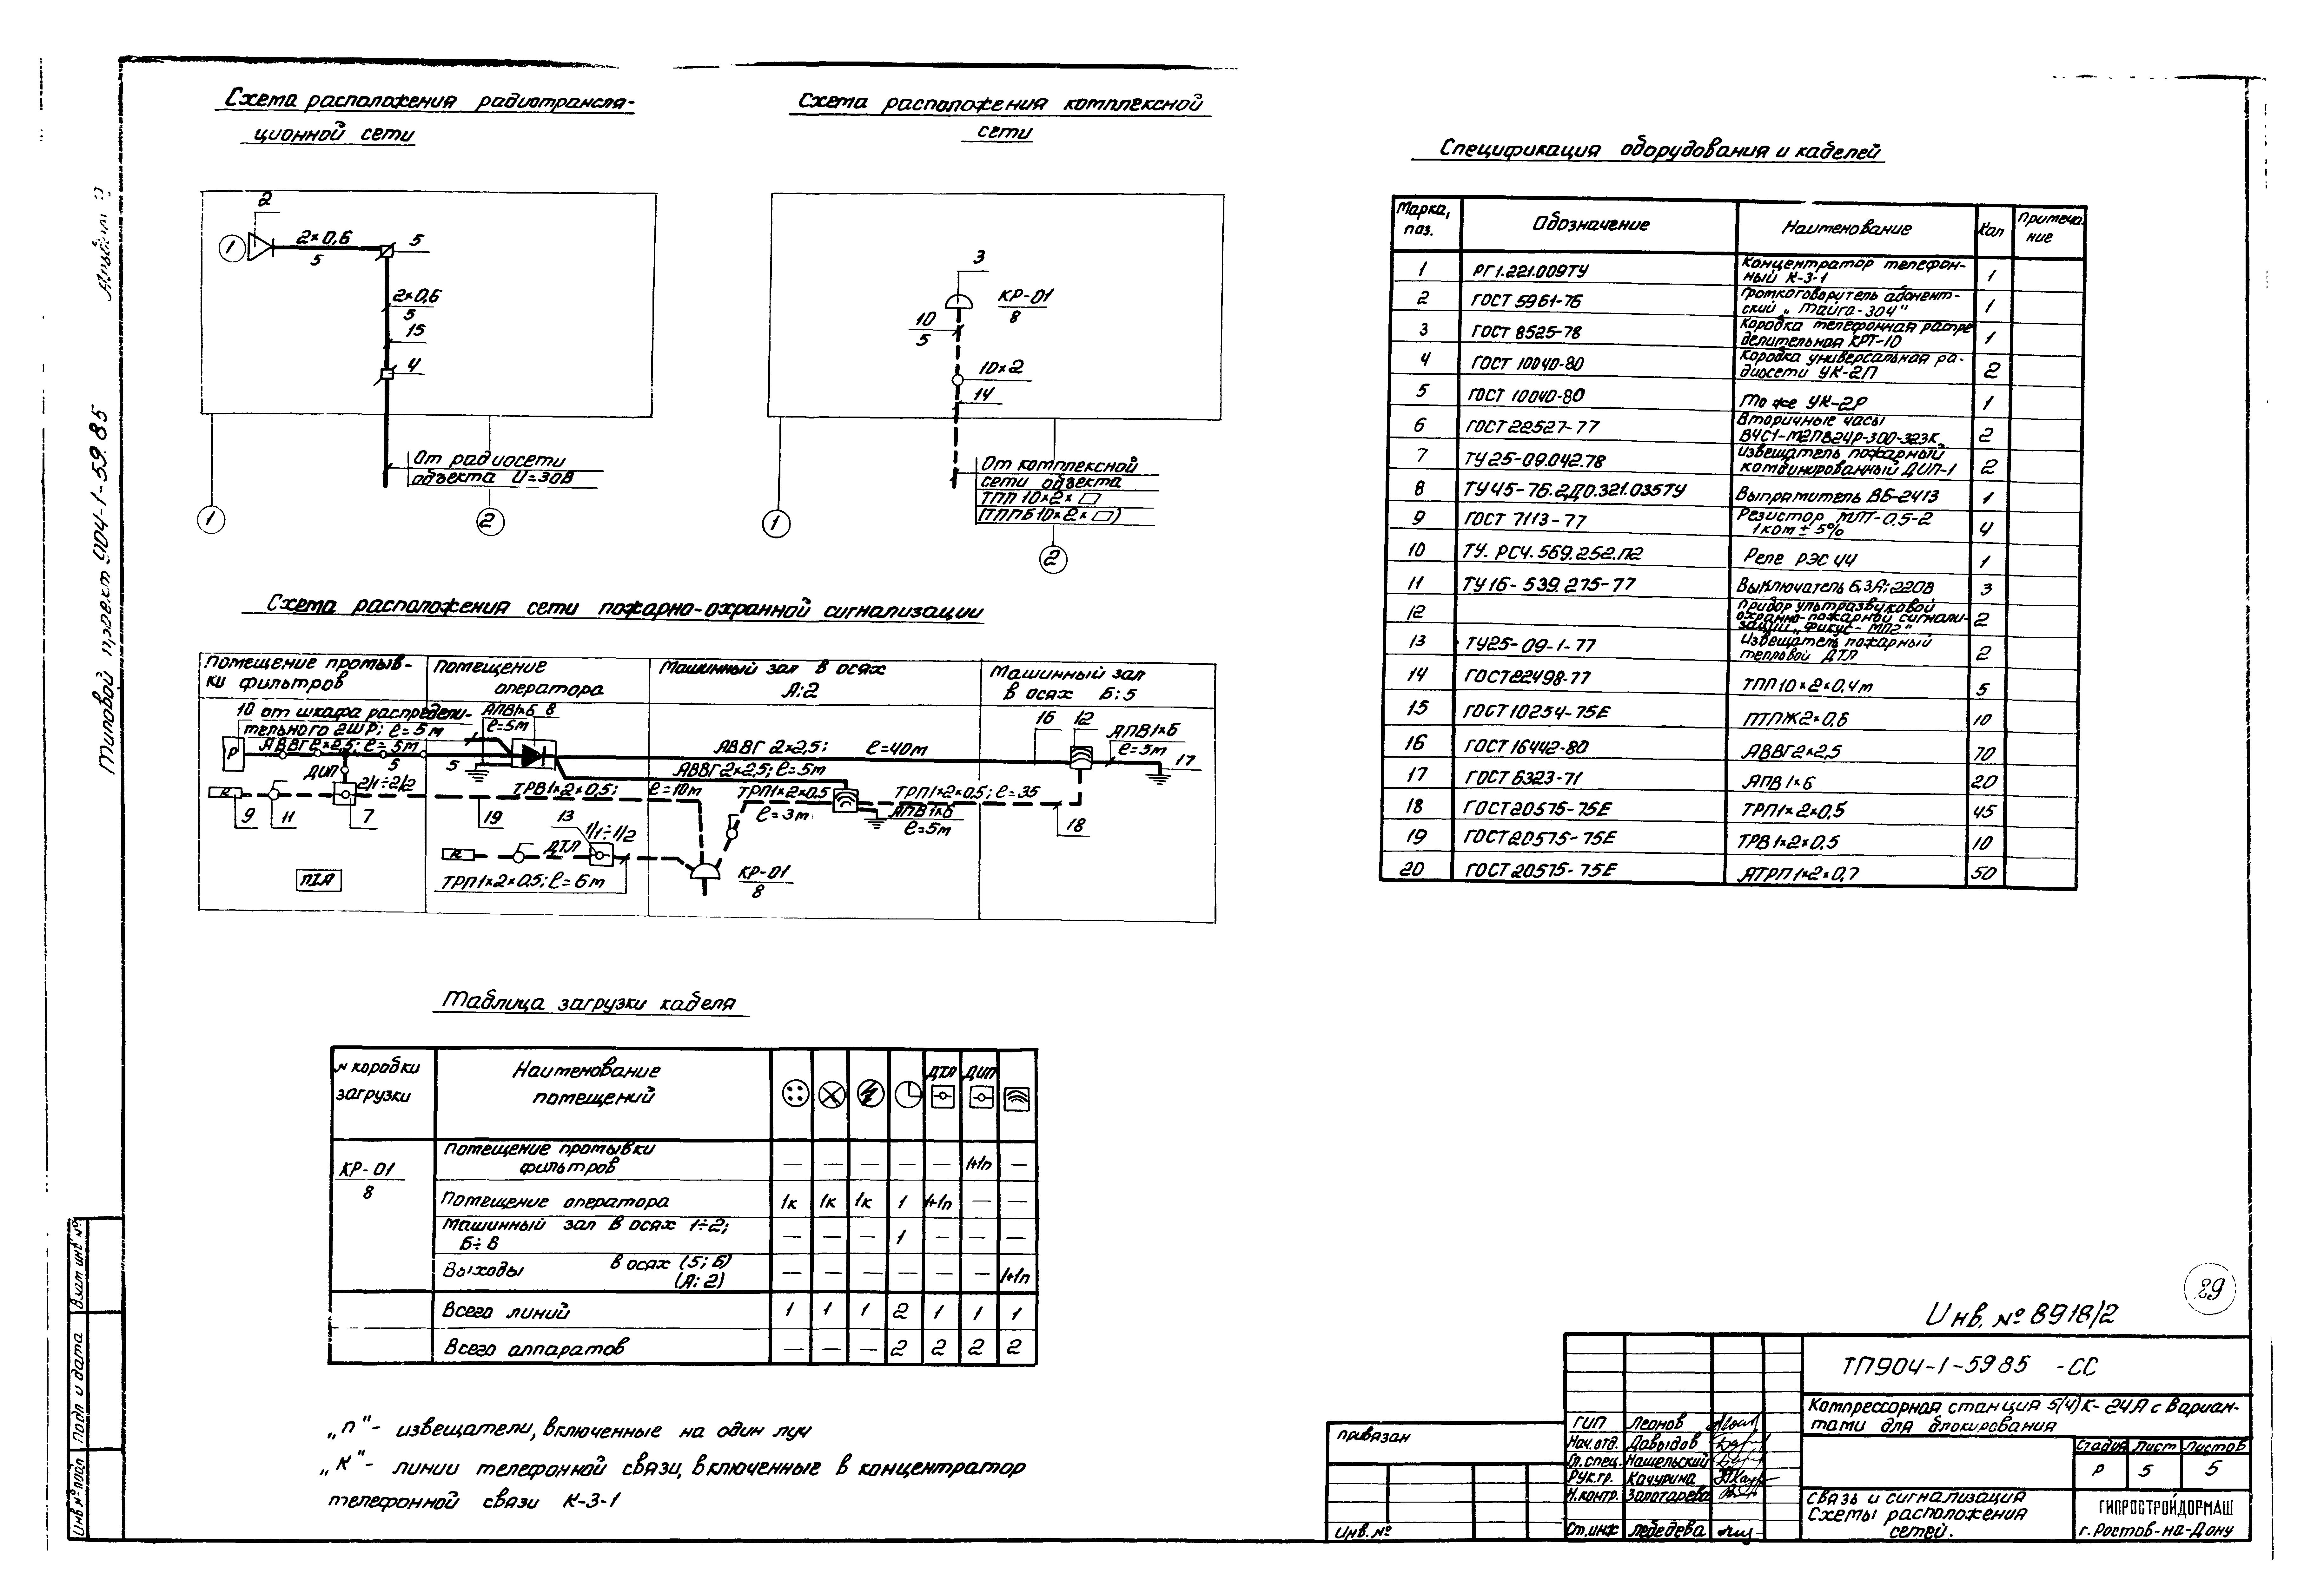 Схема расположения радиотрансля-
ционной сети
2
1
2×0,6
5
5
2×0,6
5
15
4
От радиосети
объекта U=30В
1
2
Схема расположения комплексной
сети
3
КР-01
8
10
5
10×2
14
От комплексной
сети объекта
ТПП 10×2×
(ТППБ 10×2× )
1
2
Схема расположения сети пожарно-охранной сигнализации
Помещение промыв-
ки фильтров
Помещение
оператора
Машинный зал в осях
А:2
Машинный зал
в осях Б:5
10 от шкафа распредели-
тельного 2ШР; ℓ=5м
АВВГ2×2,5; ℓ=5м
АПВ1×6 8
ℓ=5м
Р
5
5
ДИП
2/1÷2/2
R
9
11
7
АВВГ 2×2,5; ℓ=40м
АВВГ2×2,5; ℓ=5м
ТРВ1×2×0,5; ℓ=10м
ТРП1×2×0,5
ℓ=3м
ТРП1×2×0,5; ℓ=35
АПВ1×6
ℓ=5м
16
12
АПВ1×6
ℓ=5м
17
18
19
13
1/1÷1/2
ДТЛ
R
ТРП1×2×0,5; ℓ=6м
КР-01
8
Спецификация оборудования и кабелей
Марка, поз. Обозначение Наименование Кол Примечание
1 РГ1.221.009ТУ Концентратор телефон-
ный К-3-1 1
2 ГОСТ 5961-76 Громкоговоритель абонент-
ский „Тайга-304" 1
3 ГОСТ 8525-78 Коробка телефонная распре
делительная КРТ-10 1
4 ГОСТ 10040-80 Коробка универсальная ра-
диосети УК-2П 2
5 ГОСТ 10040-80 То же УК-2Р 1
6 ГОСТ22527-77 Вторичные часы
ВЧС1-М2ПВ24Р-300-323К 2
7 ТУ25-09.042.78 Извещатель пожарный
комбинированный ДИП-1 2
8 ТУ45-76.2Д0.321.035ТУ Выпрямитель ВБ-24/3 1
9 ГОСТ 7113-77 Резистор МЛТ-0,5-2
1ком ± 5% 4
10 ТУ. РС4.569.252.П2 Реле РЭС 44 1
11 ТУ16-539.275-77 Выключатель 6,3А; 220В 3
12 Прибор ультразвуковой
охранно-пожарной сигнали-
зации „Фикус-МП2" 2
13 ТУ25-09-1-77 Извещатель пожарный
тепловой ДТЛ 2
14 ГОСТ22498-77 ТПП10×2×0,4т 5
15 ГОСТ10254-75Е ПТПЖ2×0,6 10
16 ГОСТ16442-80 АВВГ2×2,5 70
17 ГОСТ6323-71 АПВ 1×6 20
18 ГОСТ20575-75Е ТРП1×2×0,5 45
19 ГОСТ20575-75Е ТРВ1×2×0,5 10
20 ГОСТ20575-75Е АТРП1×2×0,7 50
Таблица загрузки кабеля
№ коробки
загрузки
Наименование
помещений
ДТЛ ДИП
КР-01
8
Помещение промывки
фильтров — — — — — 1+1п —
Помещение оператора 1к 1к 1к 1 1+1п — —
Машинный зал в осях 1÷2;
Б÷В — — — 1 — — —
Выходы в осях (5; Б)
(А: 2) — — — — — — 1+1п
Всего линий 1 1 1 2 1 1 1
Всего аппаратов — — — 2 2 2 2
„п"- извещатели, включенные на один луч
„к"- линии телефонной связи, включенные в концентратор
телефонной связи К-3-1
29
Инв. № 8918/2
ТП904-1-59 85 -СС
Компрессорная станция 5(4)К-24А с вариан-
тами для блокирования
Стадия Лист Листов
Р 5 5
Связь и сигнализация
Схемы расположения
сетей.
ГИПРОСТРОЙДОРМАШ
г. Ростов-на-Дону
ГИП Леонов
Нач.отд. Давыдов
Гл.спец. Нашельский
Рук.гр. Качурина
Н.контр. Золотарева
Ст.инж Лебедева
Привязан
Инв. №
Типовой проект 904-1-59.85
Альбом
Взам инв №
Подп и дата
Инв № подл